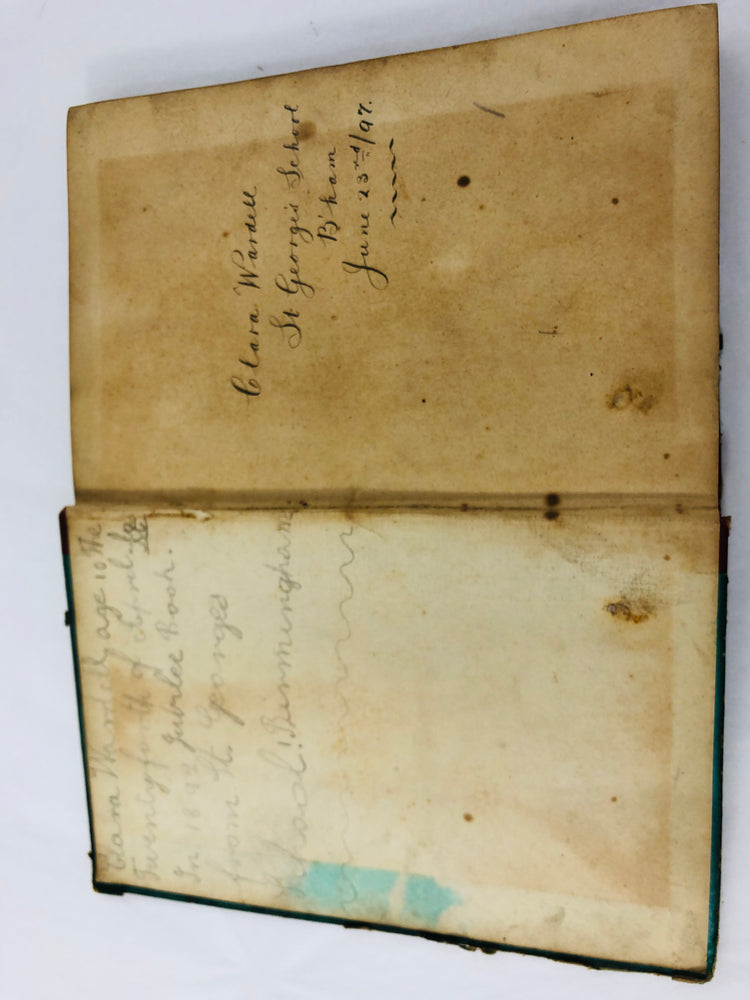 Clara Wardell age 10 the
Twentyforth of April
In 1897 Jubilee Book.
from St. Georges
School! Birmingham
Clara Wardell
St George's School
B'ham
June 23rd/97.